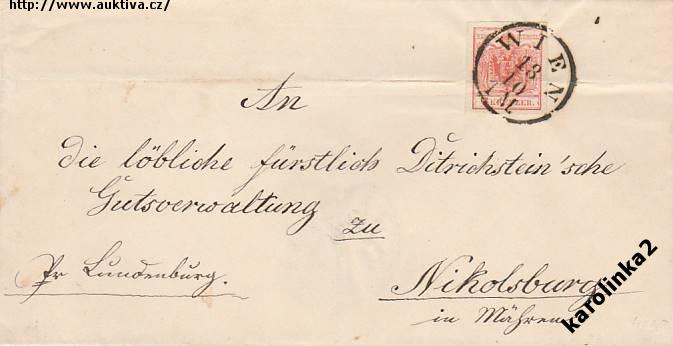 http://www.auktiva.cz/
WIEN
13
10
KREUZER.
An
die löbliche fürstlich Ditrichstein'sche
Gutsverwaltung zu
Pr Lundenburg.
Nikolsburg
in Mähren
karolinka2